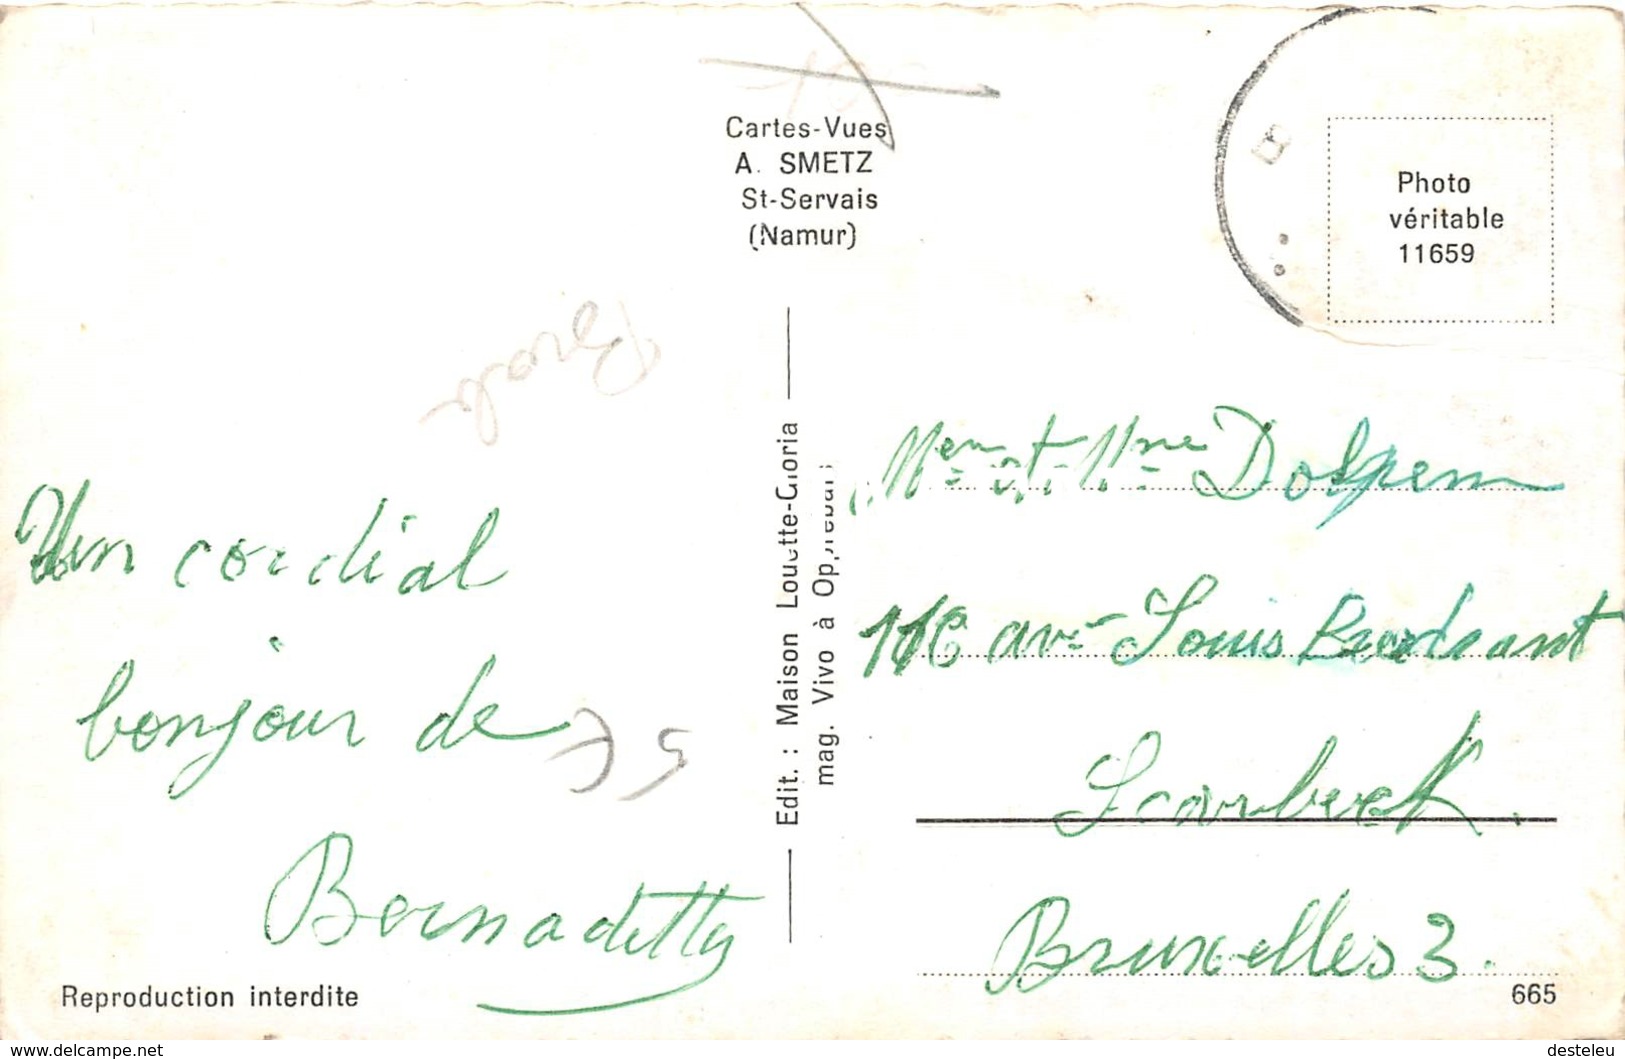 Cartes-Vues
A. SMETZ
St-Servais
(Namur)
Photo
véritable
11659
Un cordial
bonjour de
Bernadette
Edit. : Maison Louette-Gloria
mag. Vivo à
Men et Mme Dolpem
116 av. Louis
Scarbeek.
Bruxelles 3.
75
Reproduction interdite
665
www.delcampe.net
desteleu